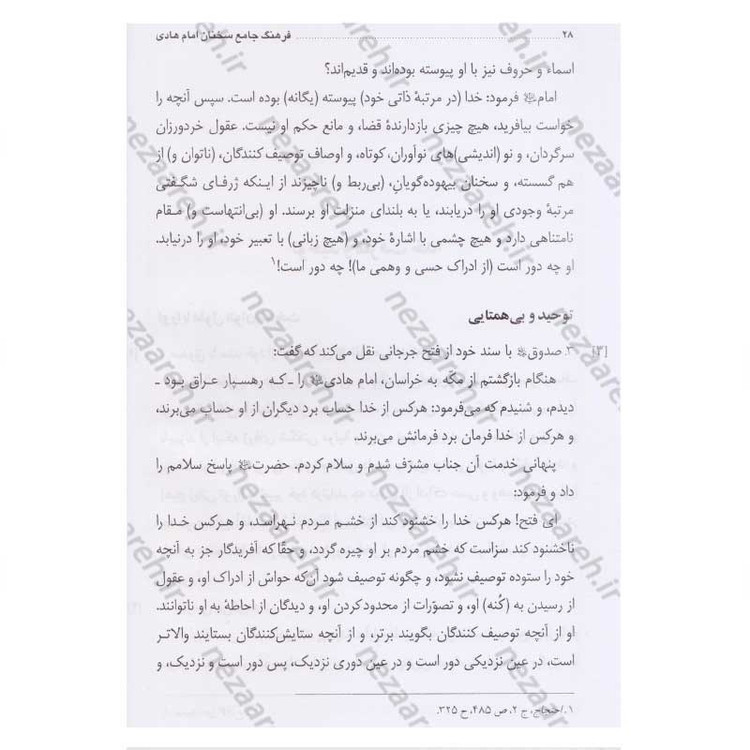 ۲۸ .......... فرهنگ جامع سخنان امام هادی
اسماء و حروف نیز با او پیوسته بوده‌اند و قدیم‌اند؟
امام فرمود: خدا (در مرتبهٔ ذاتی خود) پیوسته (یگانه) بوده است. سپس آنچه را
خواست بیافرید، هیچ چیزی بازدارندهٔ قضا، و مانع حکم او نیست. عقول خردورزان
سرگردان، و نو (اندیشی)های نوآوران، کوتاه، و اوصاف توصیف کنندگان، (ناتوان و) از
هم گسسته، و سخنان بیهوده‌گویان، (بی‌ربط و) ناچیزند از اینکه ژرفای شگفتی
مرتبهٔ وجودی او را دریابند، یا به بلندای منزلت او برسند. او (بی‌انتهاست و) مقام
نامتناهی دارد و هیچ چشمی با اشارهٔ خود، و (هیچ زبانی) با تعبیر خود، او را درنیابد.
او چه دور است (از ادراک حسی و وهمی ما)! چه دور است!۱
توحید و بی‌همتایی
[۳] ۳. صدوق با سند خود از فتح جرجانی نقل می‌کند که گفت:
هنگام بازگشتم از مکّه به خراسان، امام هادی را ـ که رهسپار عراق بود ـ
دیدم، و شنیدم که می‌فرمود: هرکس از خدا حساب برد دیگران از او حساب می‌برند،
و هرکس از خدا فرمان برد فرمانش می‌برند.
پنهانی خدمت آن جناب مشرّف شدم و سلام کردم. حضرت پاسخ سلامم را
داد و فرمود:
ای فتح! هرکس خدا را خشنود کند از خشم مردم نهراسد، و هرکس خدا را
ناخشنود کند سزاست که خشم مردم بر او چیره گردد، و حقّا که آفریدگار جز به آنچه
خود را ستوده توصیف نشود، و چگونه توصیف شود آن‌که حواسّ از ادراک او، و عقول
از رسیدن به (کُنه) او، و تصوّرات از محدود کردن او، و دیدگان از احاطه به او ناتوانند.
او از آنچه توصیف کنندگان بگویند برتر، و از آنچه ستایش‌کنندگان بستایند والاتر
است، در عین نزدیکی دور است و در عین دوری نزدیک، پس دور است و نزدیک، و
۱. احتجاج، ج ۲، ص ۴۸۵، ح ۳۲۵.
nezaareh.ir